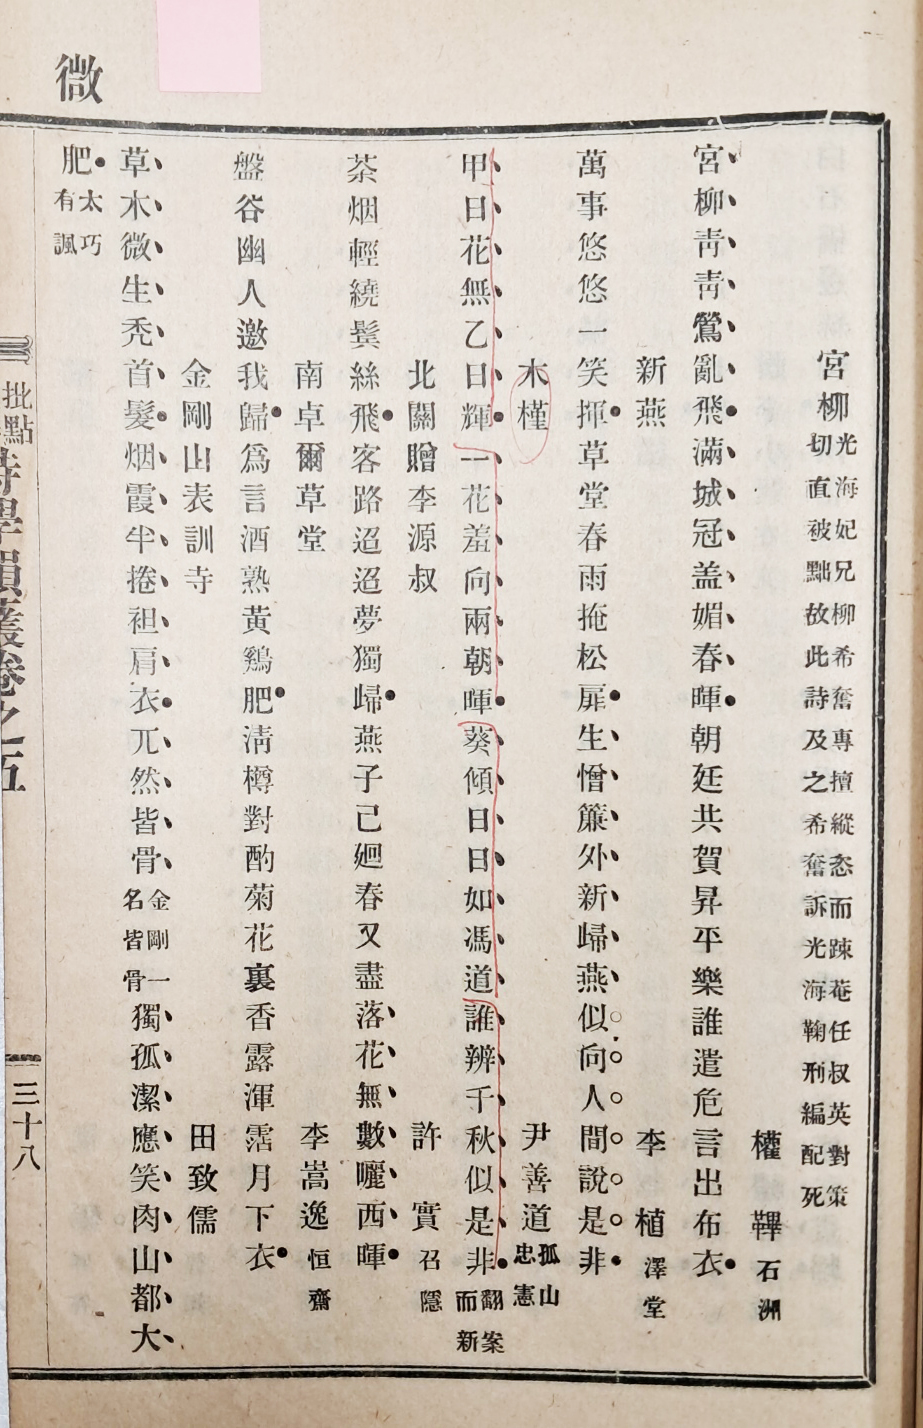 微
宮柳 光海妃兄柳希奮專擅縱恣而踈菴任叔英對策切直被黜故此詩及之希奮訴光海鞠刑編配死
權韠 石洲
宮柳靑靑鶯亂飛滿城冠盖媚春暉朝廷共賀昇平樂誰遣危言出布衣
新燕 李植 澤堂
萬事悠悠一笑揮草堂春雨掩松扉生憎簾外新歸燕似向人間說是非
木槿 尹善道 孤山 忠憲
甲日花無乙日輝一花羞向兩朝暉葵傾日日如馮道誰辨千秋似是非 翻案而新
北關贈李源叔 許實 召隱
茶烟輕繞鬓絲飛客路迢迢夢獨歸燕子已廻春又盡落花無數曬西暉
南卓爾草堂 李嵩逸 恒齋
盤谷幽人邀我歸爲言酒熟黄鷄肥淸樽對酌菊花裏香露渾霑月下衣
金剛山表訓寺 田致儒
草木微生禿首髮烟霞半捲袒肩衣兀然皆骨 金剛一名皆骨 獨孤潔應笑肉山都大
肥 太巧有諷
批點詩學韻叢卷之五
三十八